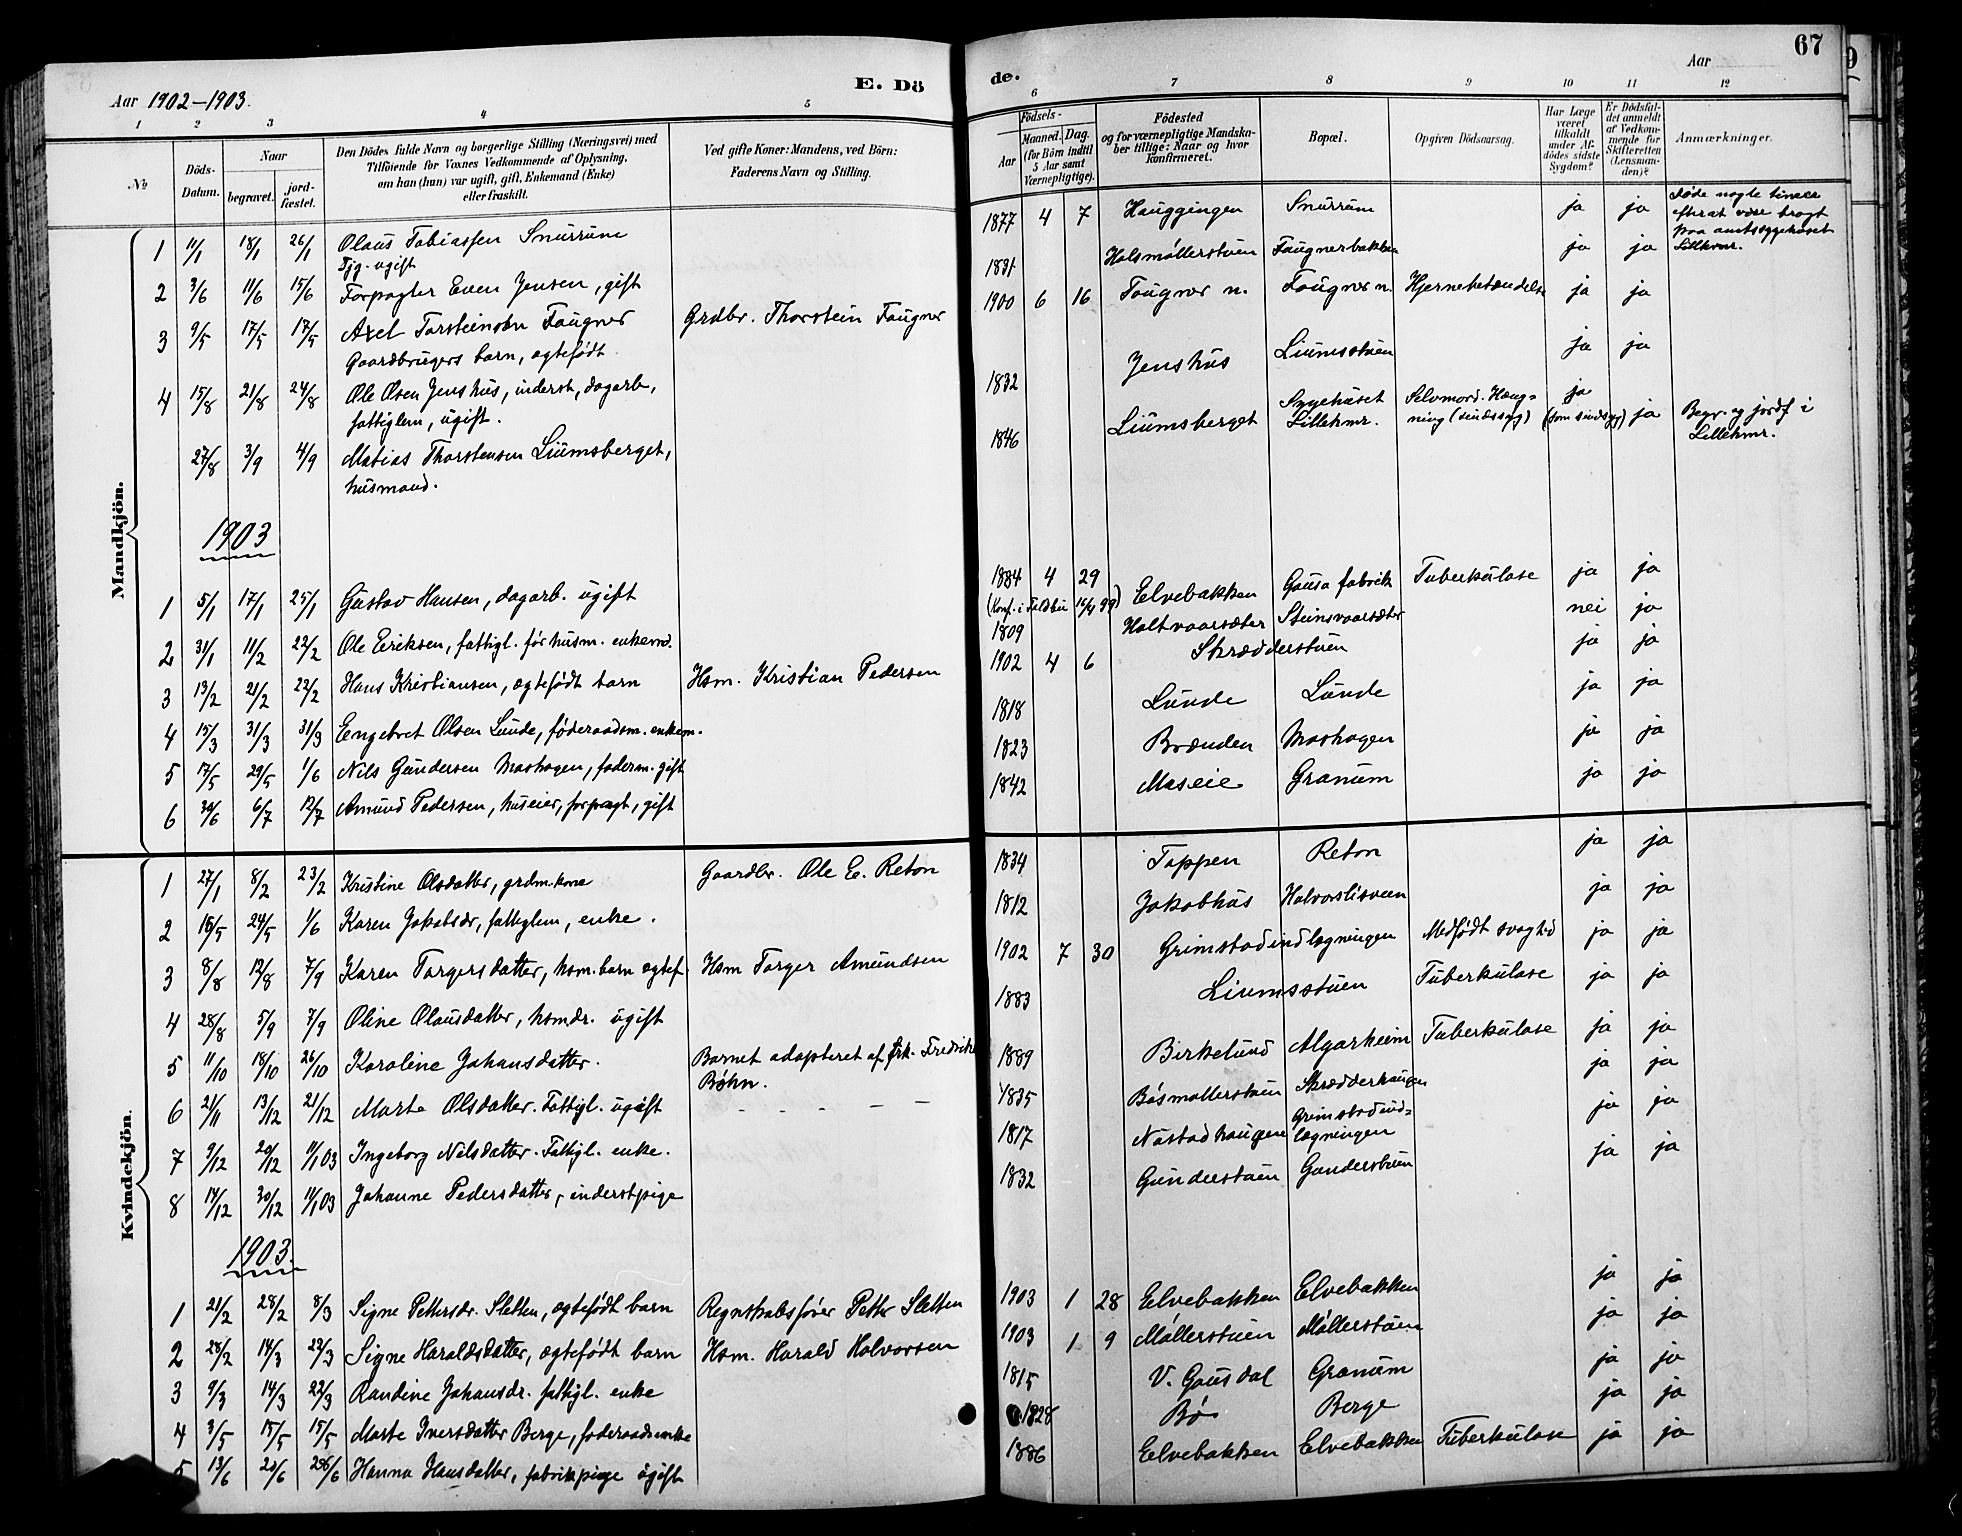 67
Aar 1902-1903.
E. Dö
de.
Aar
1
2
3
4
5
6
7
8
9
10
11
12
No
Döds-
Datum.
Naar
begravet.
jord-
fæstet.
Den Dödes fulde Navn og borgerlige Stilling (Næringsvei) med
Tilföiende for Voxnes Vedkommende af Oplysning,
om han (hun) var ugift, gift, Enkemand (Enke)
eller fraskilt.
Ved gifte Koner: Mandens, ved Börn:
Faderens Navn og Stilling.
Födsels-
Aar
Maaned.
Dag.
(for Börn indtil
5 Aar samt
Værnepligtige).
Födested
og for værnepligtige Mandska-
ber tillige: Naar og hvor
konfirmeret.
Bopæl.
Opgiven Dödsaarsag.
Har Læge
været
tilkaldt
under Af-
dödes sidste
Sygdom?
Er Dödsfal-
det anmeldt
af Vedkom-
mende for
Skifteretten
(Lensman-
den)?
Anmærkninger.
Mandkjön.
1 11/1 18/1 26/1 Olaus Tobiassen Snurrum 1877 4 7 Hauggingen Snurrum ja ja Døde nogle timer
Tjg. ugift efterat være bragt
paa amtssygehuset
Lillehmr.
2 3/6 11/6 15/6 Forpagter Even Jensen, gift 1831 Holsmøllerstuen Faugnerbakken ja ja
3 9/5 17/5 17/5 Axel Torsteinsøn Faugner Grdbr. Thorstein Faugner 1900 6 16 Faugner n. Faugner n. Hjernebetændelse ja ja
Gaardbrugers barn, ægtefødt.
4 15/8 21/8 24/8 Ole Olsen Jenshus, inderst, dagarb, 1832 Jenshus Liumsstuen ja ja
fattiglem, ugift.
27/8 3/9 4/9 Matias Thorstensen Liumsberget, 1846 Liumsberget Sygehuset Selvmord. Hæng- ja ja Begr. og jordf i
husmand. Lillehmr. ning (sindssyg) (som sindssyg) Lillehmr.
1903
1 5/1 17/1 25/1 Gustav Hansen, dagarb. ugift 1884 4 29 Elvebakken Gausa fabrik Tuberkulose ja ja
2 31/1 11/2 22/2 Ole Eriksen, fattigl. før husm. enkem. 1809 Holtvaarsæter Steinsvaarsæter nei ja
3 13/2 21/2 22/2 Hans Kristiansen, ægtefødt barn Hsm. Kristian Pedersen 1902 4 6 Skrædderstuen ja ja
4 15/3 31/3 31/3 Engebret Olsen Lunde, føderaadsm. enkem. 1818 Lunde Lunde ja ja
5 17/5 29/5 1/6 Nils Gundersen Moshagen, føderm. gift 1823 Brænden Moshagen ja ja
6 30/6 6/7 12/7 Amund Pedersen, huseier, forpagt, gift 1842 Moseie Granum ja ja
Kvindekjön.
1 27/1 8/2 23/2 Kristine Olsdatter, grdm.kone Gaardbr. Ole E. Reton 1834 Toppen Reton ja ja
2 16/5 24/5 1/6 Karen Jakobsdr, fattiglem, enke. 1812 Jakobhus Halvorslisveen ja ja
3 8/8 12/8 7/9 Karen Torgersdatter, hsm.barn ægtef. Hsm Torger Amundsen 1902 7 30 Grimstadindlægningen Medfødt svaghed ja ja
4 28/8 5/9 7/9 Oline Olausdatter, hsmdr. ugift 1883 Liumsstuen Tuberkulose ja ja
5 11/10 18/10 26/10 Karoline Johansdatter. Barnet adopteret af frk. Fredrikke 1889 Birkelund Algarheim Tuberkulose ja ja
Bøhn.
6 21/11 13/12 21/12 Marte Olsdatter. Fattigl. ugift – – – – – 1835 Bøsmøllerstuen Skrædderhaugen ja ja
7 9/12 20/12 11/1 03 Ingeborg Nilsdatter. Fattigl. enke. 1817 Nustadhaugene Grimstadind= ja ja
lægningen
8 14/12 30/12 11/1 03 Johanne Pedersdatter, inderstpige 1832 Gunderstuen Gunderstuen ja ja
1903.
1 21/2 28/2 8/3 Signe Pettersdr. Sletten, ægtefødt barn Regnskabsfører Petter Sletten 1903 1 28 Elvebakken Elvebakken ja ja
2 28/2 14/3 22/3 Signe Haraldsdatter, ægtefødt barn Hsm. Harald Halvorsen 1903 1 9 Møllerstuen Møllerstuen ja ja
3 9/3 14/3 22/3 Randine Johansdr. fattigl. enke 1815 V. Gausdal Granum ja ja
4 3/5 15/5 15/5 Marte Iversdatter Berge, føderaadsenke 1828 Bø Berge ja ja
5 13/6 20/6 28/6 Hanna Hansdatter, fabrikpige ugift 1886 Elvebakken Elvebakken Tuberkulose ja ja